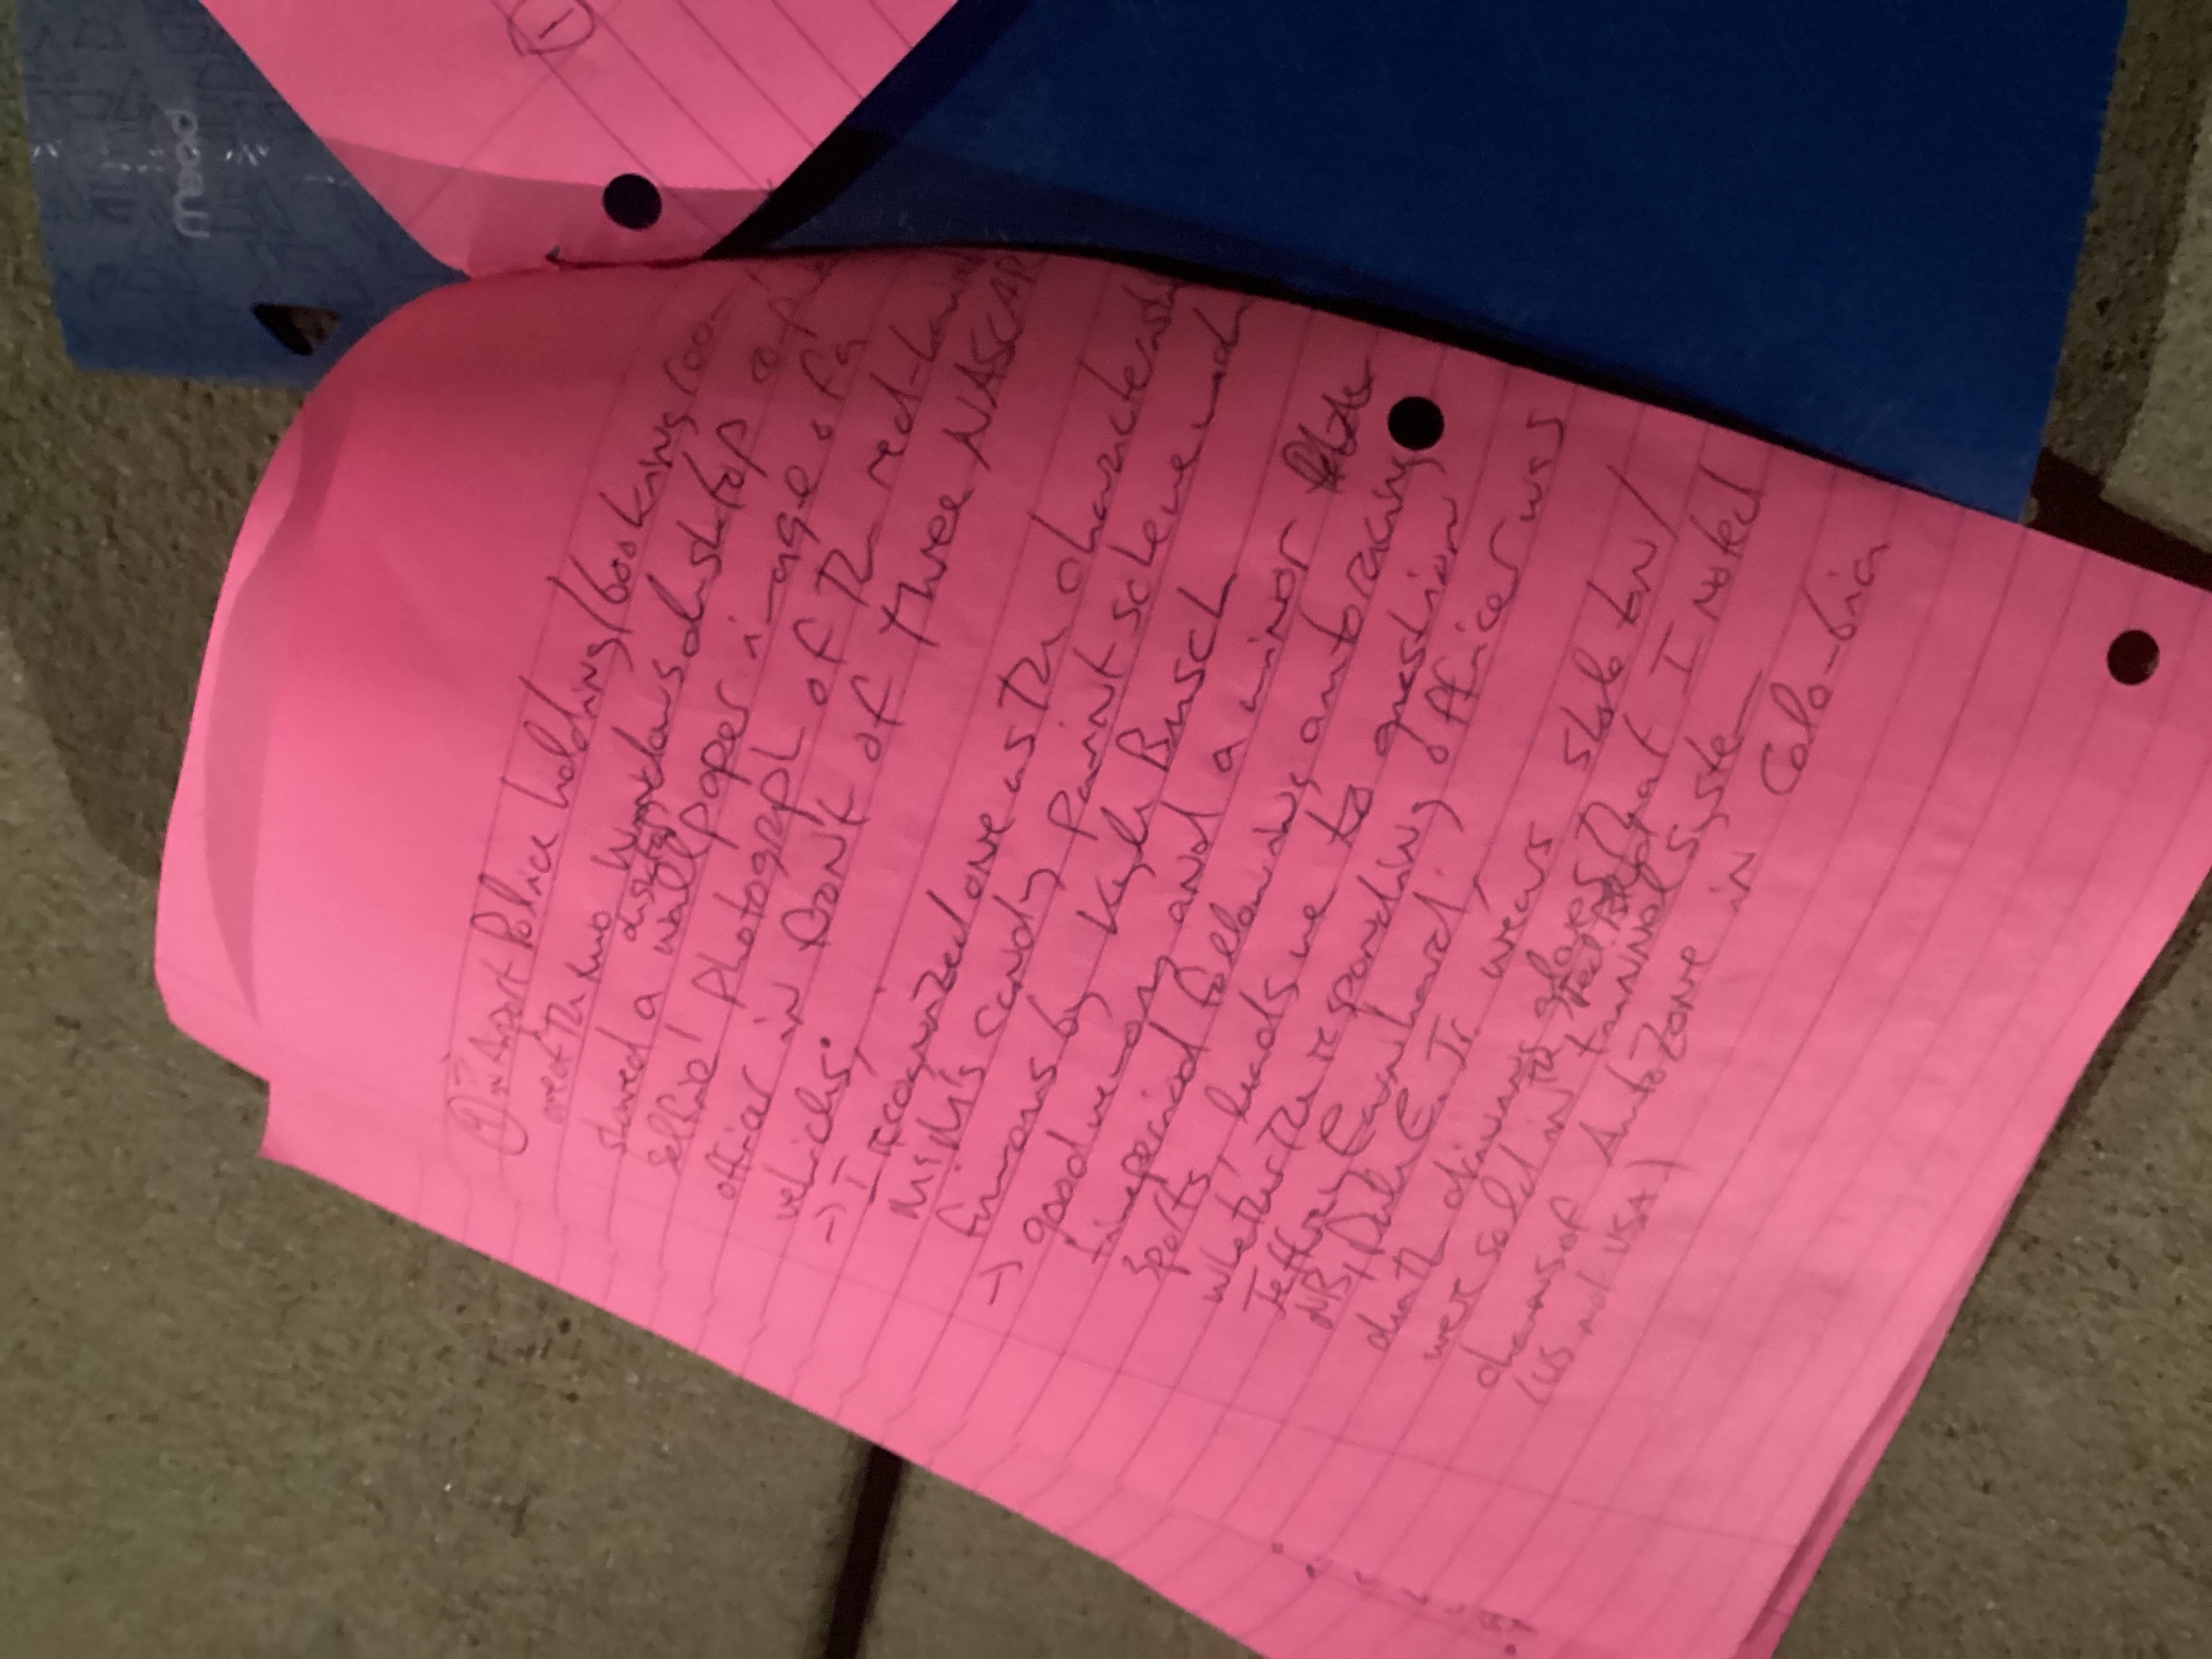 mead
④ → in Airport Police holding/booking room,
one of the two Windows desktop
showed a desktop wallpaper image of a
selfie photograph of the red-haired
officer in front of three NASCAR
vehicles;
→ I recognized one as the characteristic
M&M's candy paint scheme made
famous by Kyle Busch
→ good memory and a minor
time period following autoracing
sports, leads me to question
whether the responding officer was
Jeffrey Earnhardt;
NB, Dale E. Jr. wears skeleton/
death driving gloves that I noted
were sold in the tunnel system
chains of AutoZone in Colombia
(US not USA)